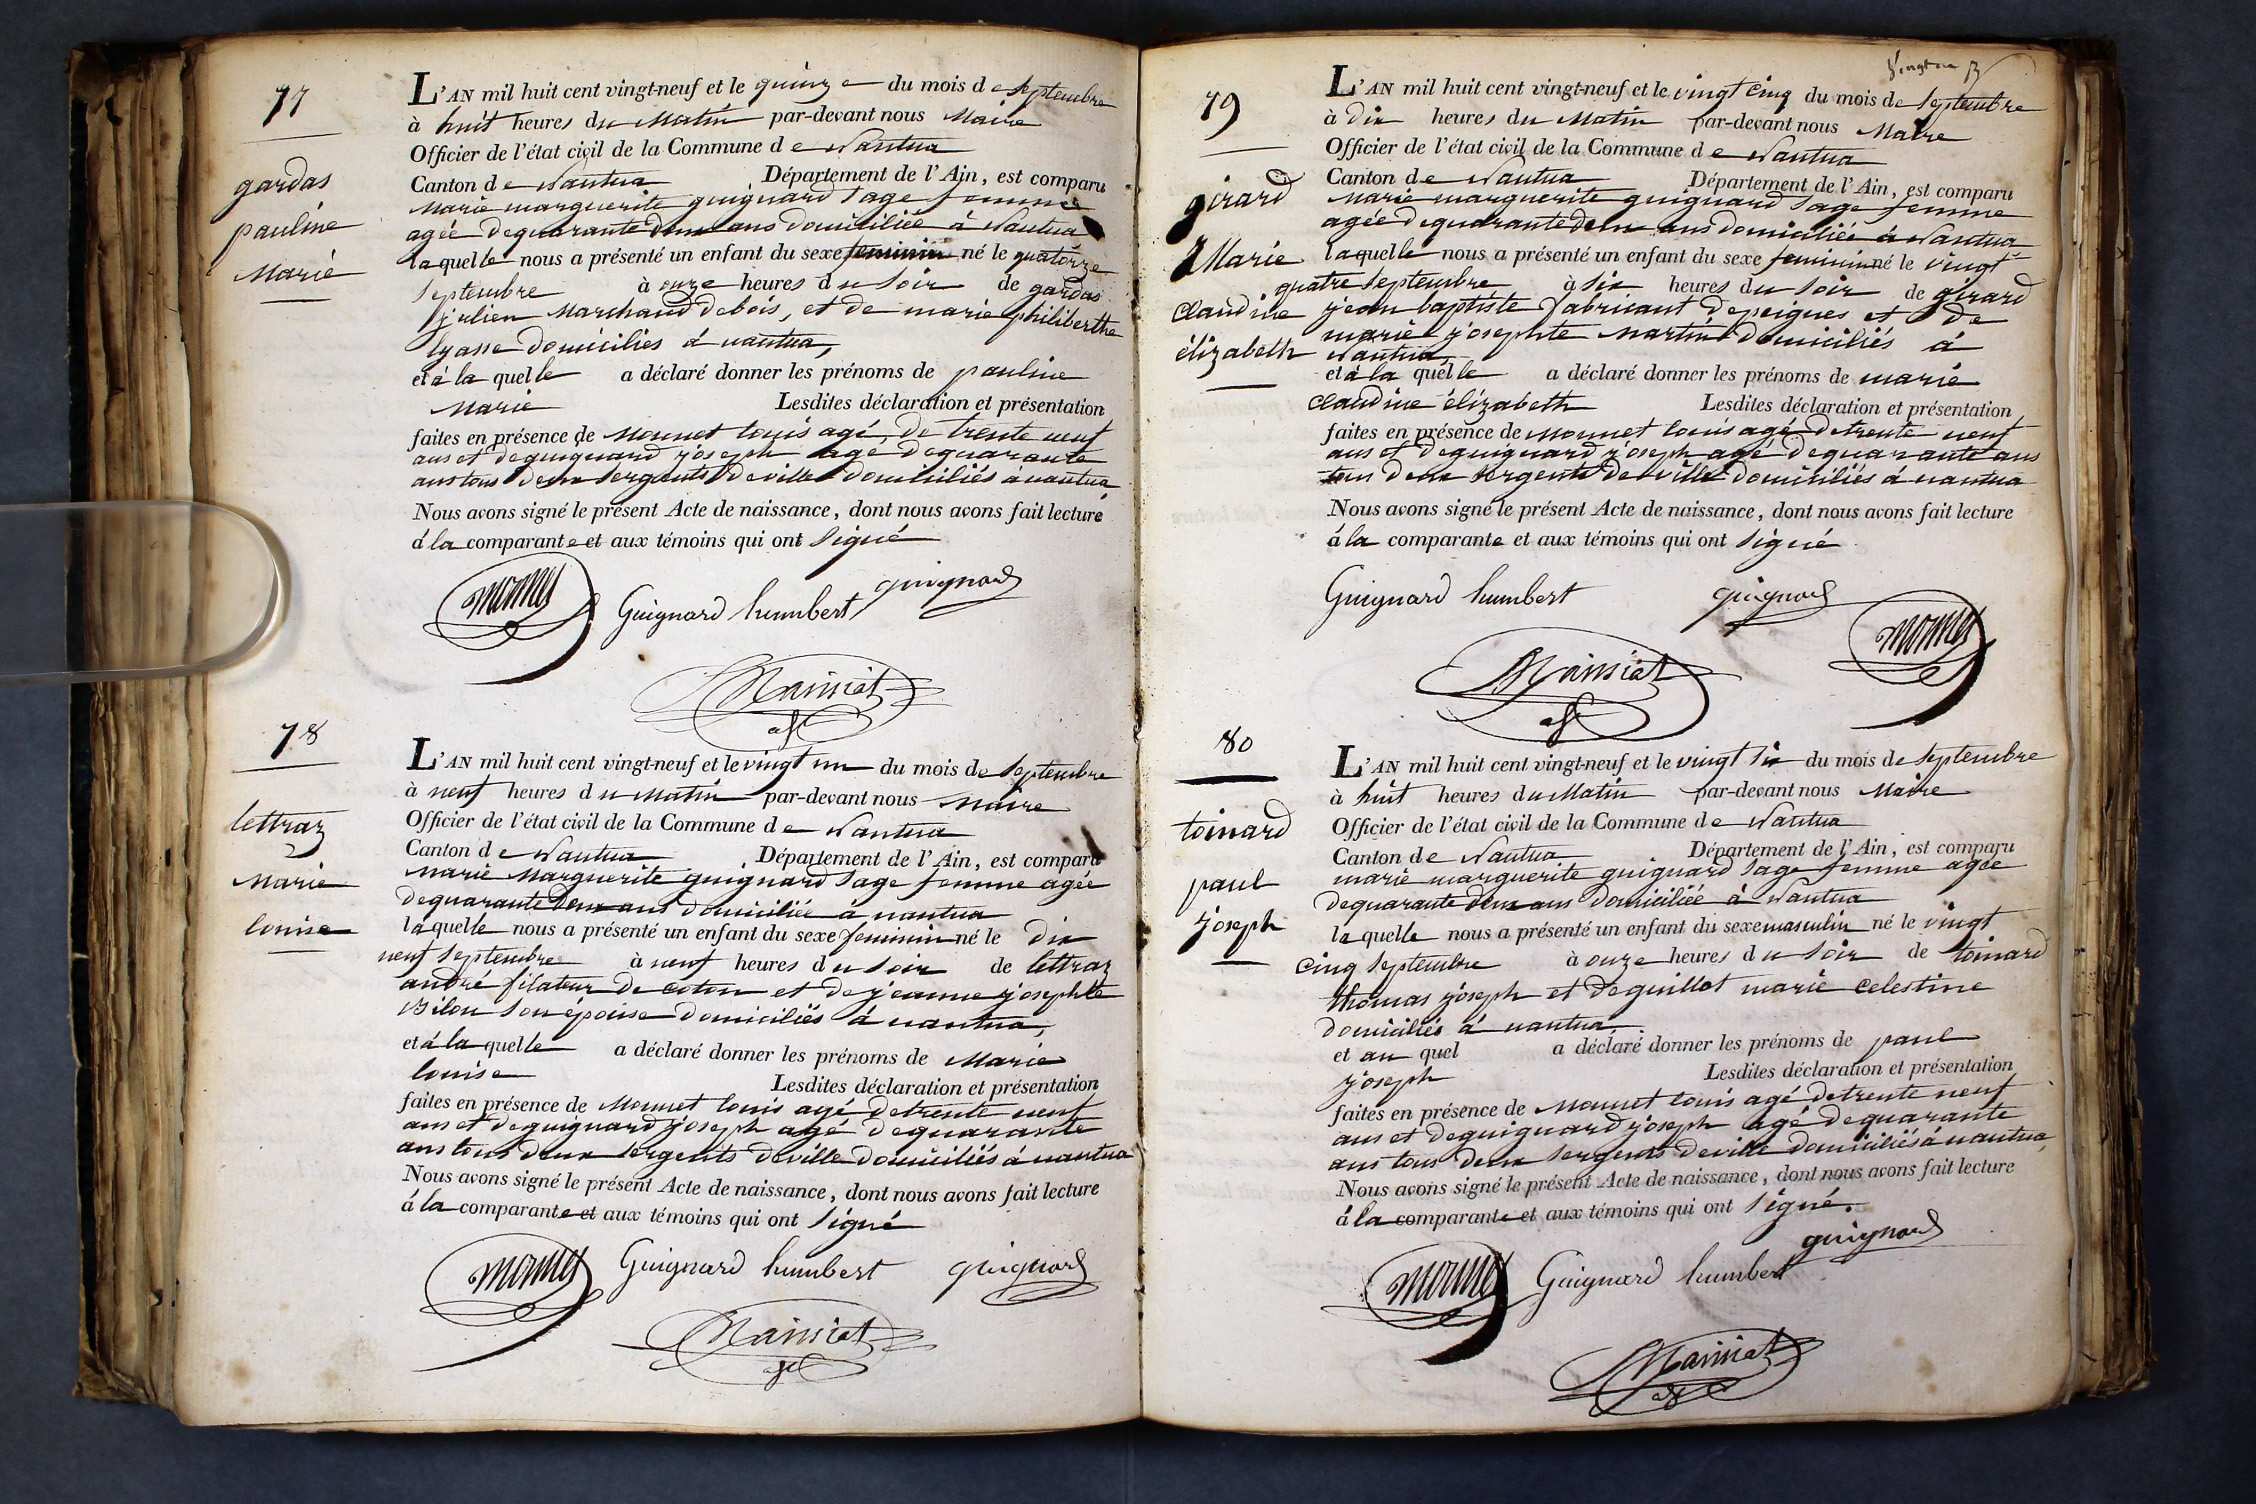 77
gardas
pauline
Marie
L'AN mil huit cent vingt-neuf et le quinze du mois de Septembre
à huit heures du Matin par-devant nous Maire
Officier de l'état civil de la Commune de Nantua
Canton de Nantua Département de l'Ain, est comparu
Marie marguerite guignard Sage femme
agée de quarante deux ans domiciliée à Nantua
laquelle nous a présenté un enfant du sexe feminin né le quatorze
Septembre à onze heures du Soir de gardas
julien Marchand de bois, et de marie philiberthe
lyasse domiciliés à nantua,
et à la quelle a déclaré donner les prénoms de pauline
Marie Lesdites déclaration et présentation
faites en présence de Monnet louis agé, de trente neuf
ans et de guignard joseph agé de quarante
ans tous deux Sergents de ville domiciliés à nantua
Nous avons signé le présent Acte de naissance, dont nous avons fait lecture
à la comparante et aux témoins qui ont Signé
monnet Guignard humbert guignard
Mainiat
78
lettraz
Marie
louise
L'AN mil huit cent vingt-neuf et le vingt un du mois de Septembre
à neuf heures du Matin par-devant nous Maire
Officier de l'état civil de la Commune de Nantua
Canton de Nantua Département de l'Ain, est comparu
Marie Marguerite guignard Sage femme agée
de quarante deux ans domiciliée à nantua
laquelle nous a présenté un enfant du sexe feminin né le dix
neuf Septembre à neuf heures du Soir de lettraz
andré filateur de coton et de jeanne josephte
Bilon Son épouse domiciliés à nantua,
et à la quelle a déclaré donner les prénoms de Marie
louise Lesdites déclaration et présentation
faites en présence de Monnet louis agé de trente neuf
ans et de guignard joseph agé de quarante
ans tous deux Sergents de ville domiciliés à nantua
Nous avons signé le présent Acte de naissance, dont nous avons fait lecture
à la comparante et aux témoins qui ont Signé
monnet Guignard humbert guignard
Mainiat
79
girard
Marie
claudine
élizabeth
L'AN mil huit cent vingt-neuf et le vingt cinq du mois de Septembre
à dix heures du Matin par-devant nous Maire
Officier de l'état civil de la Commune de Nantua
Canton de Nantua Département de l'Ain, est comparu
Marie marguerite guignard Sage femme
agée de quarante deux ans domiciliée à Nantua
laquelle nous a présenté un enfant du sexe feminin né le vingt
quatre Septembre à Six heures du Soir de girard
jean baptiste fabricant de peignes et de
marie josephte Martin domiciliés à
Nantua
et à la quelle a déclaré donner les prénoms de marie
claudine élizabeth Lesdites déclaration et présentation
faites en présence de Monnet louis agé de trente neuf
ans et de guignard joseph agé de quarante ans
tous deux Sergents de ville domiciliés à nantua
Nous avons signé le présent Acte de naissance, dont nous avons fait lecture
à la comparante et aux témoins qui ont Signé
Guignard humbert guignard monnet
Mainiat
80
toinard
paul
joseph
L'AN mil huit cent vingt-neuf et le vingt Six du mois de Septembre
à huit heures du Matin par-devant nous Maire
Officier de l'état civil de la Commune de Nantua
Canton de Nantua Département de l'Ain, est comparu
marie marguerite guignard Sage femme agée
de quarante deux ans domiciliée à Nantua
laquelle nous a présenté un enfant du sexe masculin né le vingt
cinq Septembre à onze heures du Soir de toinard
thomas joseph et de guillot marie Celestine
domiciliés à nantua
et au quel a déclaré donner les prénoms de paul
joseph Lesdites déclaration et présentation
faites en présence de Monnet louis agé de trente neuf
ans et de guignard joseph agé de quarante
ans tous deux Sergents de ville domiciliés à nantua
Nous avons signé le présent Acte de naissance, dont nous avons fait lecture
à la comparante et aux témoins qui ont Signé.
monnet Guignard humbert guignard
Mainiat